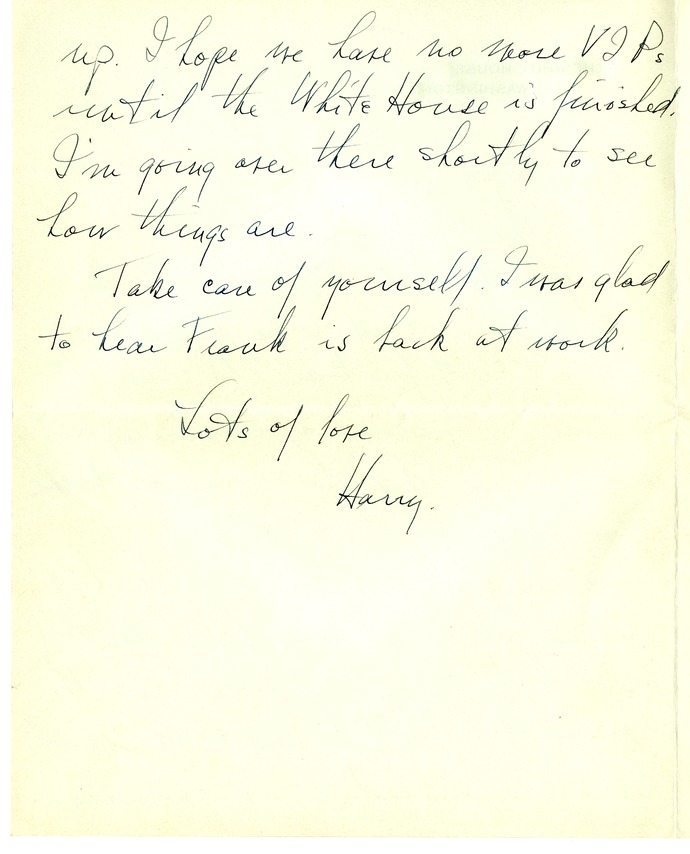 up. I hope we have no more VIPs
until the White House is finished.
I'm going over there shortly to see
how things are.
Take care of yourself. I was glad
to hear Frank is back at work.
Lots of love
Harry.